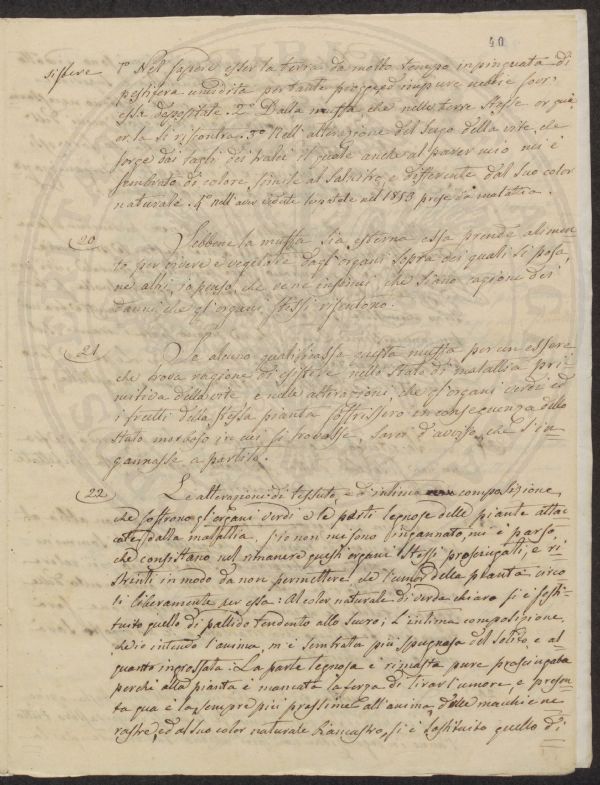 40
sistere 1º Nel sapere esser la terra da molto tempo inpinguata di
pestifera umidità portante proggetti impure nebbie sovr'
essa depositate. 2º Dalla muffa che nelle terre stesse or quà
or là si riscontra. 3º Nell'alterazione del sugo della vite, che
sorge dai tagli dei tralci il quale anche al parer mio mi è
sembrato di colore simile al salnitro, e differente dal suo color
naturale. 4º Nell'aver vedute le patate nel 1853 prese da malattia.
20 Sebbene la muffa sia esterna essa prende alimen
to per vivere e vegetare dagli organi sopra dei quali si posa,
ne altri, io penso, che vene inspiri che siano ragione dei
danni che gl'organi stessi risentono.
21 Se alcuno qualificasse questa muffa per un essere
che trova ragione di esistere nello stato di malattia pri
mitiva della vite e nelle alterazioni, che gl'organi verdi ed
i frutti della stessa pianta soffrissero in conseguenza dello
stato morboso in cui si trovasse, sarei d'avviso, che s'in=
gannasse a partito.
22 Le alterazioni di tessuto, e d'intima composizione,
che soffrono gl'organi verdi e le parti legnose delle piante attac
cate dalla malattia, s'io non mi sono ingannato, mi è parso,
che consistano nel rimanere questi organi stessi prosciugati, e ri=
stretti in modo da non permettere che l'umor della pianta circo
li liberamente per essa: Al color naturale di verde chiaro si è sosti=
tuito quello di pallido tendente allo scuro; L'intima composizione,
che io intendo l'anima, m'è sembrata più spugnosa del solito, e al=
quanto ingrossata. La parte legnosa è rimasta pure prosciugata
perchè alla pianta è mancata la forza di tirar l'umore, e presen=
ta qua e là, sempre più prossime all'anima, delle macchie ne
rastre, ed al suo color naturale biancastro, si è sostituito quello di